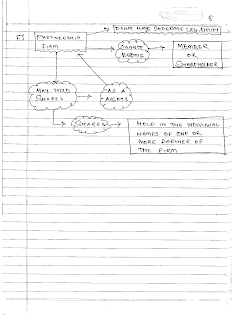 5
DOES HAVE SEPERATE LEG. ENTITY
PARTNERSHIP
FIRM
CANNOT
BECOME
MEMBER
OR
SHAREHOLDER
MAY HOLD
SHARES
AS A
ASSETS
SHARES
HELD IN THE INDIVIDUAL
NAMES OF ONE OR
MORE PARTNER OF
THE FIRM